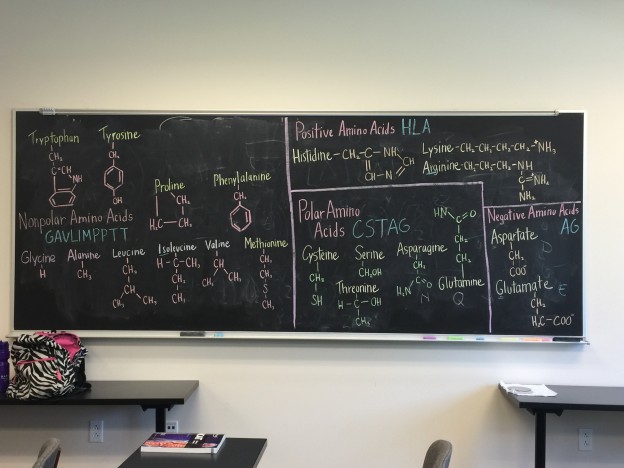 Tryptophan
CH₂
C=CH
NH
Tyrosine
CH₂
OH
Proline
H₂C
CH₂
Phenylalanine
CH₂
Nonpolar Amino Acids
GAVLIMPPTT
Glycine
H
Alanine
CH₃
Leucine
CH₂
CH
CH₃
CH₃
Isoleucine
H-C-CH₃
CH₂
CH₃
Valine
CH
CH₃
CH₃
Methionine
CH₂
CH₂
S
CH₃
Positive Amino Acids HLA
Histidine-CH₂-C-NH
CH
CH-N
Lysine-CH₂-CH₂-CH₂-CH₂-⁺NH₃
Arginine-CH₂-CH₂-CH₂-NH
C=NH₂
NH₂
Polar Amino
Acids CSTAG
Cysteine
CH₂
SH
Serine
CH₂OH
Threonine
H-C-OH
CH₃
Asparagine
CH₂
H₂N C=O
N
H₂N C=O
CH₂
CH₂
Glutamine
Q
Negative Amino Acids
AG
Aspartate
D
CH₂
COO⁻
Glutamate
E
CH₂
H₂C-COO⁻